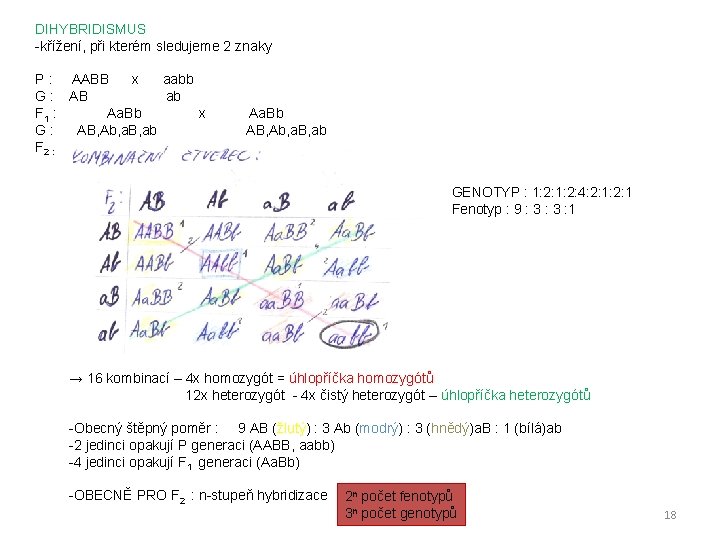 DIHYBRIDISMUS
-křížení, při kterém sledujeme 2 znaky
P : AABB x aabb
G : AB ab
F1 : Aa.Bb x Aa.Bb
G : AB, Ab, a.B, ab AB, Ab, a.B, ab
F2 :
KOMBINAČNÍ ČTVEREC :
GENOTYP : 1:2:1:2:4:2:1:2:1
Fenotyp : 9 : 3 : 3 :1
F2: AB Ab aB ab
AB AABB 1 AABb 2 AaBB 2 AaBb 4
Ab AABb AAbb 1 AaBb Aabb 2
aB AaBB AaBb aaBB 1 aaBb 2
ab AaBb Aabb aaBb aabb 1
→ 16 kombinací – 4x homozygót = úhlopříčka homozygótů
12x heterozygót - 4x čistý heterozygót – úhlopříčka heterozygótů
-Obecný štěpný poměr : 9 AB (žlutý) : 3 Ab (modrý) : 3 (hnědý)a.B : 1 (bílá)ab
-2 jedinci opakují P generaci (AABB, aabb)
-4 jedinci opakují F1 generaci (Aa.Bb)
-OBECNĚ PRO F2 : n-stupeň hybridizace 2ⁿ počet fenotypů
3ⁿ počet genotypů
18